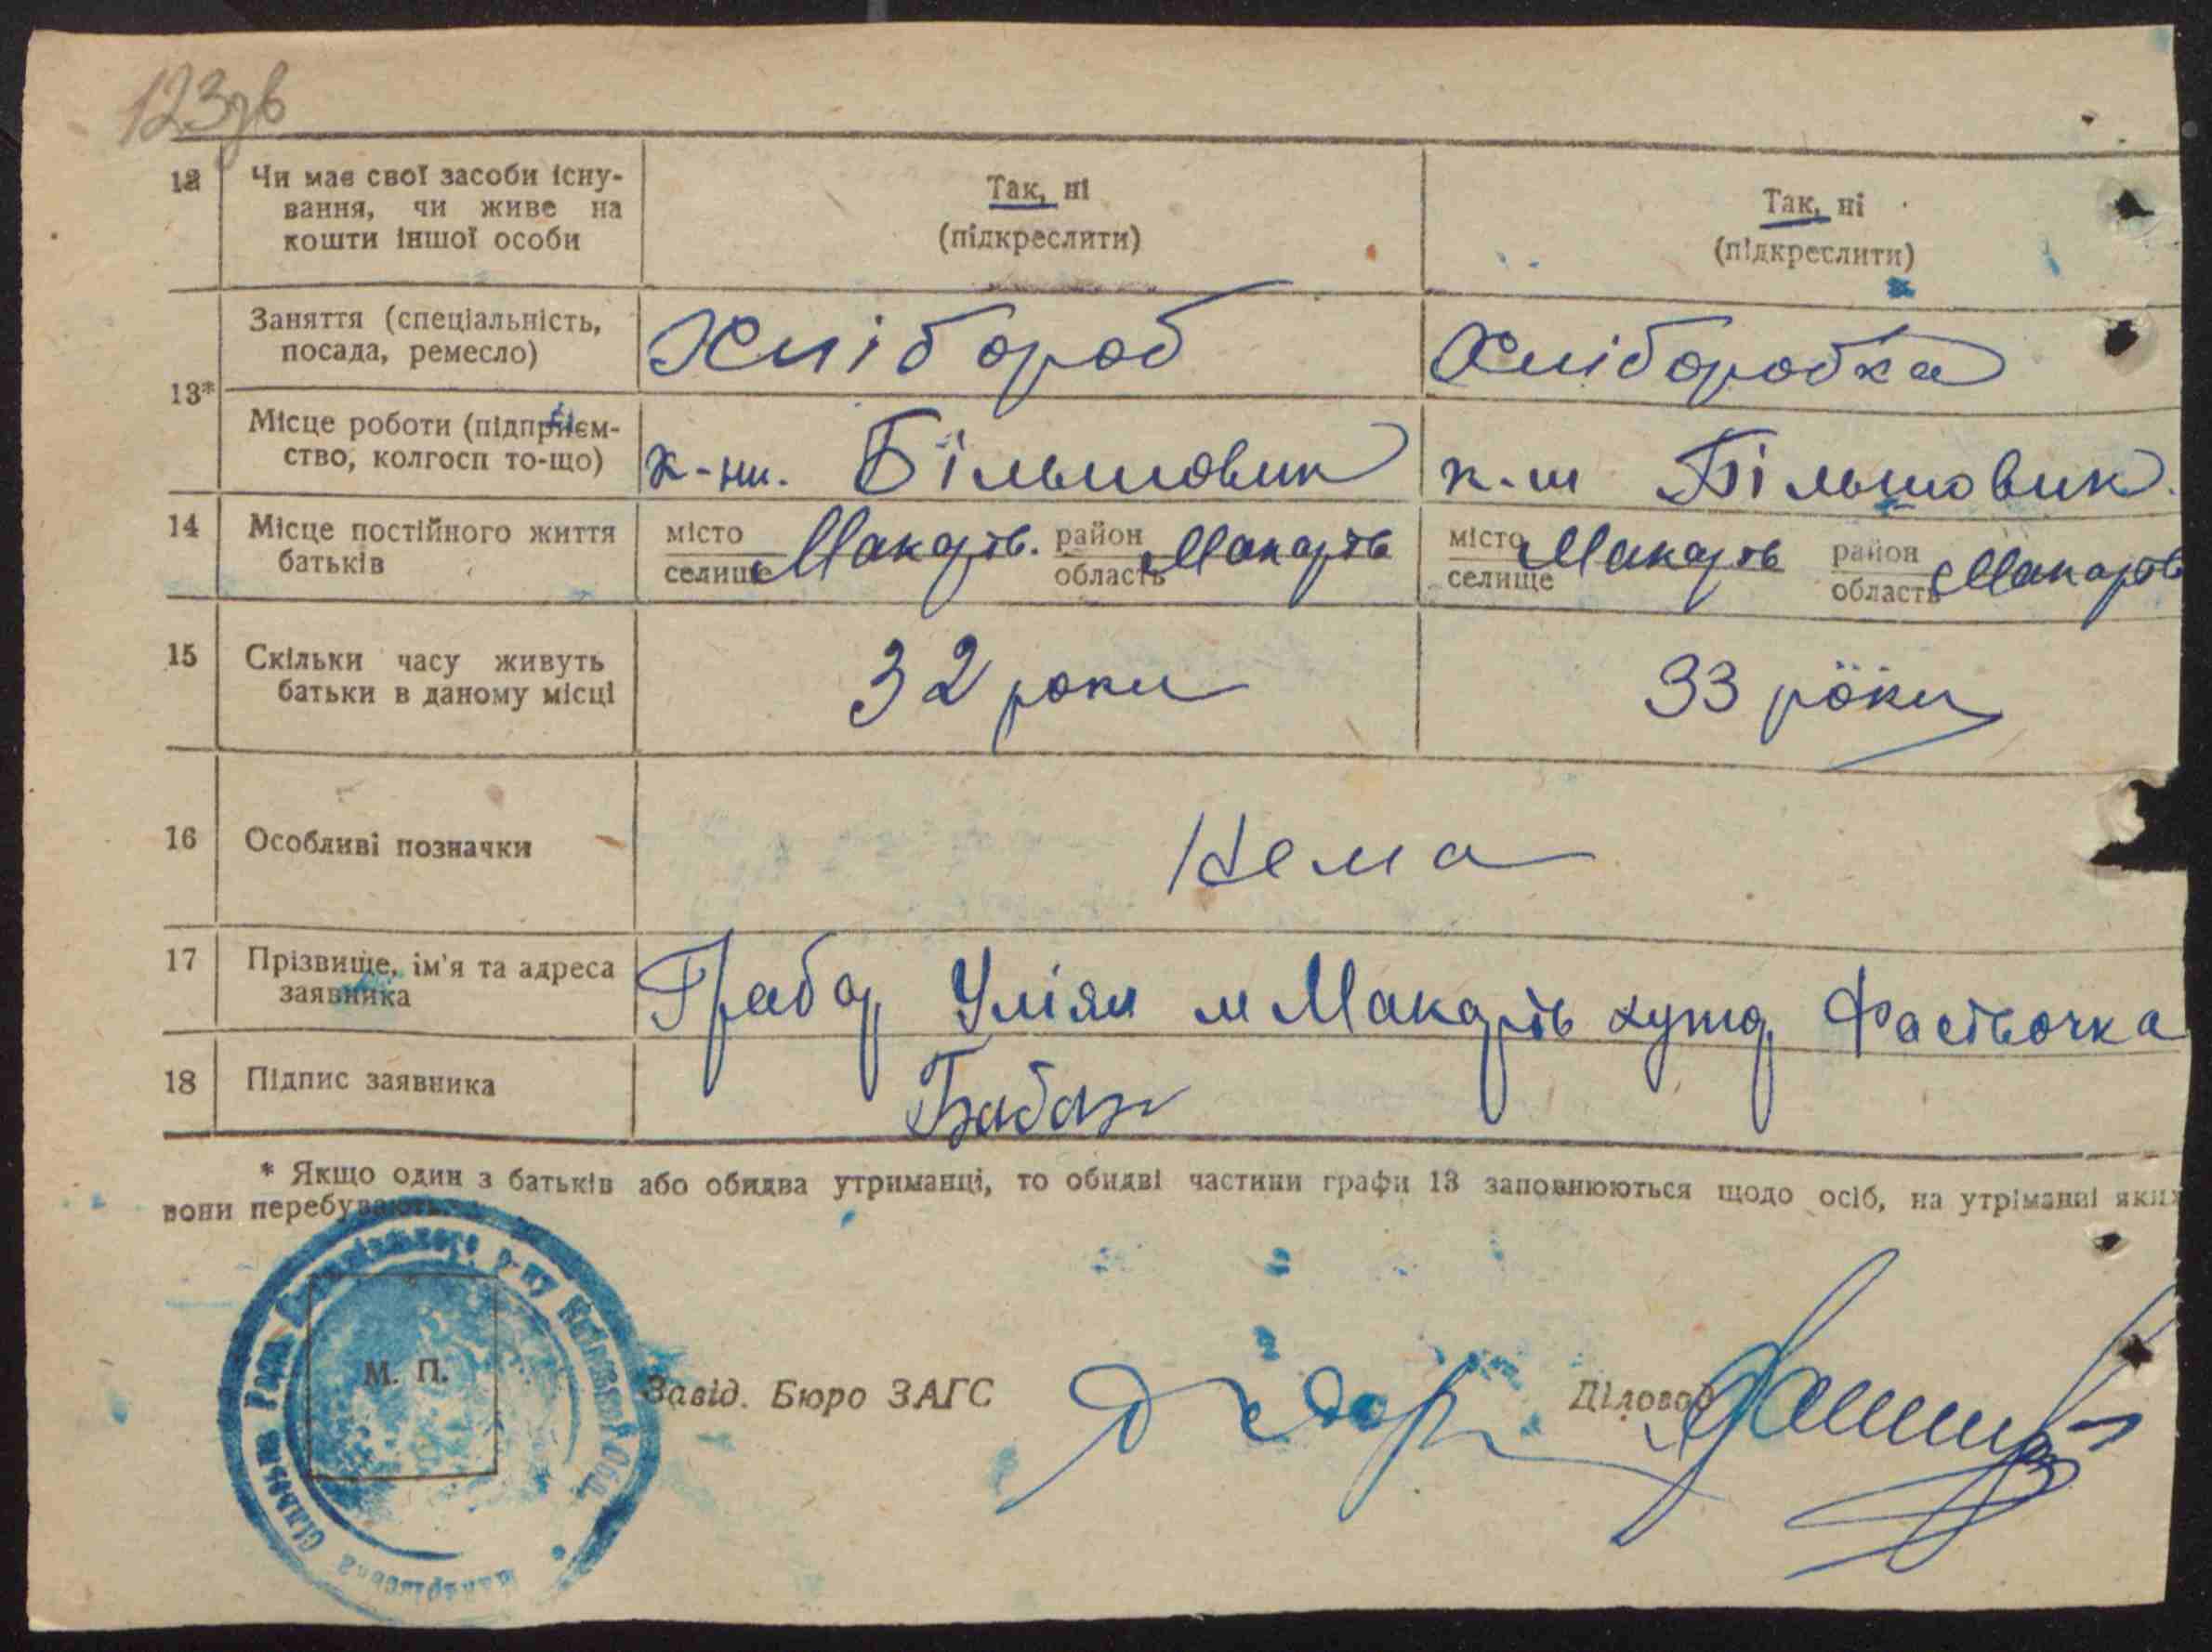 123зв
12 Чи має свої засоби існу-
вання, чи живе на
кошти іншої особи
Так, ні
(підкреслити)
Так, ні
(підкреслити)
13*
Заняття (спеціальність,
посада, ремесло)
Хлібороб
Хліборобка
Місце роботи (підприєм-
ство, колгосп то-що)
Більшовик
Більшовик
14 Місце постійного життя
батьків
місто
селище
Макарів.
район
область
Макарів
місто
селище
Макарів
район
область
Макарів
15 Скільки часу живуть
батьки в даному місці
32 роки
33 роки
16 Особливі позначки
Нема
17 Прізвище, ім'я та адреса
заявника
Грабар Уліян м Макарів хутір Фасівочка
18 Підпис заявника
* Якщо один з батьків або обидва утриманці, то обидві частини графи 13 заповнюються щодо осіб, на утріманні яких
вони перебувають.
М. П.
Завід. Бюро ЗАГС
Діловод